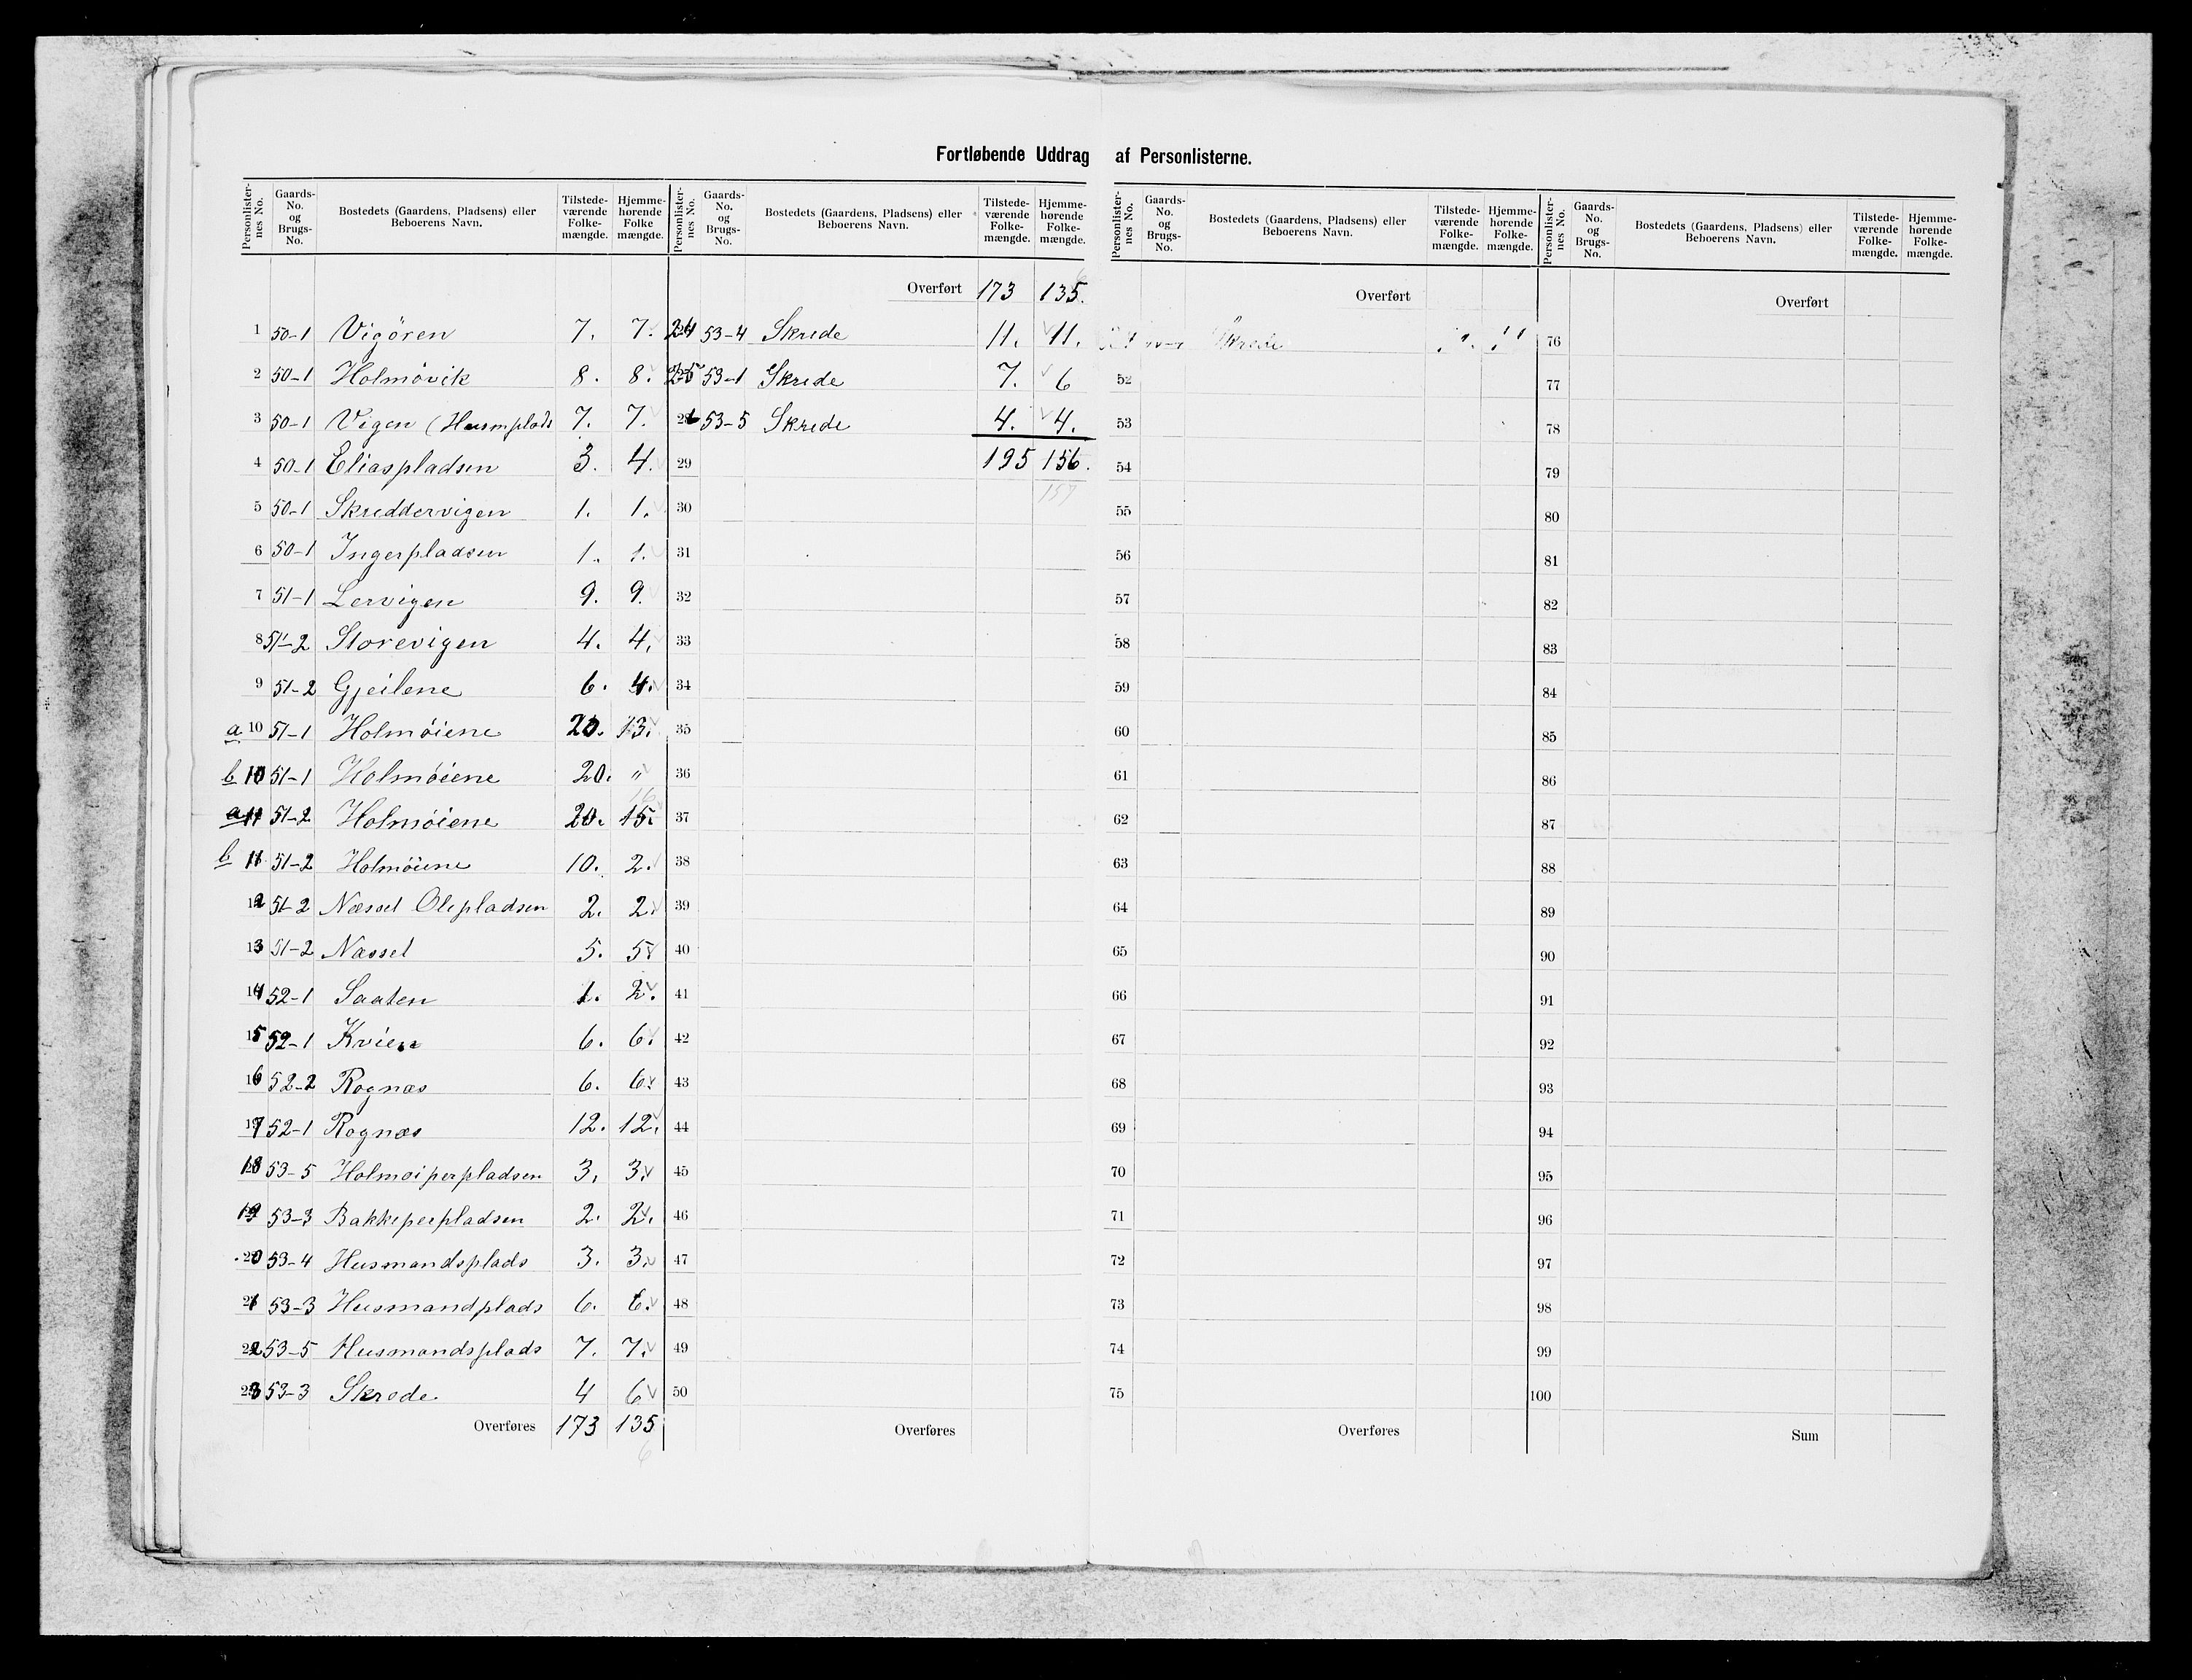 Fortløbende Uddrag af Personlisterne.
Personlisternes No. | Gaards-No. og Brugs-No. | Bostedets (Gaardens, Pladsens) eller Beboerens Navn. | Tilstedeværende Folkemængde. | Hjemmehørende Folke mængde.
1 50-1 Vigören 7. 7.
2 50-1 Holmövik 8. 8.
3 50-1 Vigen (Husmplads 7. 7.
4 50-1 Eliaspladsen 3. 4.
5 50-1 Skreddervigen 1. 1.
6 50-1 Ingerpladsen 1. 1.
7 51-1 Lervigen 9. 9.
8 51-2 Storevigen 4. 4.
9 51-2 Gjeilene 6. 4.
a 10 51-1 Holmöiene 20. 13.
b 10 51-1 Holmöiene 20. "
a 11 51-2 Holmöiene 20. 15.
b 11 51-2 Holmöiene 10. 2.
12 51-2 Næsset Olepladsen 2. 2.
13 51-2 Næsset 5. 5
14 52-1 Saaten 1. 2.
15 52-1 Kvien 6. 6.
16 52-2 Rognæs 6. 6.
17 52-1 Rognæs 12. 12.
18 53-5 Holmöiperpladsen 3. 3.
19 53-3 Bakkeperpladsen 2. 2.
20 53-4 Husmandsplads 3. 3.
21 53-3 Husmandplads 6. 6.
22 53-5 Husmandsplads 7. 7.
23 53-3 Skrede 4 6
Overføres 173 135
6
Personlisternes No. | Gaards-No. og Brugs-No. | Bostedets (Gaardens, Pladsens) eller Beboerens Navn. | Tilstedeværende Folkemængde. | Hjemmehørende Folkemængde.
Overført 173 135.
24 53-4 Skrede 11. 11.
25 53-1 Skrede 7. 6
26 53-5 Skrede 4. 4.
29 195 156.
157
30
31
32
33
34
35
36
37
38
39
40
41
42
43
44
45
46
47
48
49
50
Overføres
Personlisternes No. | Gaards-No. og Brugs-No. | Bostedets (Gaardens, Pladsens) eller Beboerens Navn. | Tilstedeværende Folkemængde. | Hjemmehørende Folkemængde.
Overført
Skrede 11
52
53
54
55
56
57
58
59
60
61
62
63
64
65
66
67
68
69
70
71
72
73
74
75
Overføres
Personlisternes No. | Gaards-No. og Brugs-No. | Bostedets (Gaardens, Pladsens) eller Beboerens Navn. | Tilstedeværende Folkemængde. | Hjemmehørende Folkemængde.
Overført
76
77
78
79
80
81
82
83
84
85
86
87
88
89
90
91
92
93
94
95
96
97
98
99
100
Sum